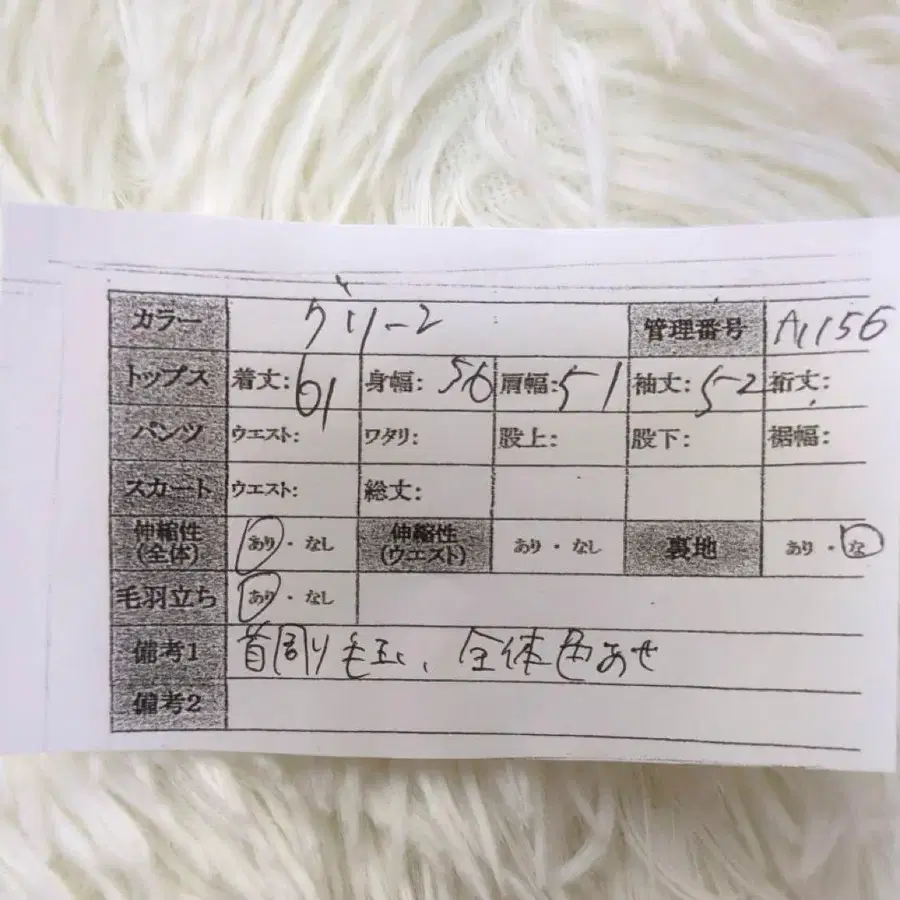 カラー グリーン 管理番号 A1156
トップス 着丈: 61 身幅: 56 肩幅: 51 袖丈: 52 裄丈:
パンツ ウエスト: ワタリ: 股上: 股下: 裾幅:
スカート ウエスト: 総丈:
伸縮性(全体) あり・なし 伸縮性(ウエスト) あり・なし 裏地 あり・な
毛羽立ち あり・なし
備考1 首周り毛玉、全体色あせ
備考2